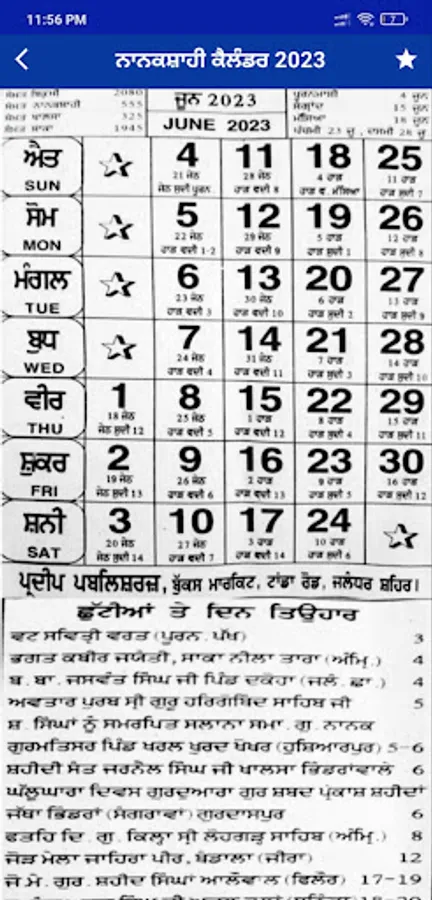 11:56 PM 7
ਨਾਨਕਸ਼ਾਹੀ ਕੈਲੰਡਰ 2023
ਸੰਮਤ ਬਿਕ੍ਰਮੀ 2080
ਸੰਮਤ ਨਾਨਕਸ਼ਾਹੀ 555
ਸੰਮਤ ਖਾਲਸਾ 325
ਸੰਮਤ ਸ਼ਾਕਾ 1945
ਜੂਨ 2023
JUNE 2023
ਪੂਰਨਮਾਸ਼ੀ 4 ਜੂਨ
ਸੰਗ੍ਰਾਂਦ 15 ਜੂਨ
ਮੱਸਿਆ 18 ਜੂਨ
ਪੰਚਮੀ 23 ਜੂ., ਦਸਮੀ 28 ਜੂ.
ਐਤ 4 11 18 25
SUN 21 ਜੇਠ 28 ਜੇਠ 4 ਹਾੜ 11 ਹਾੜ
ਜੇਠ ਸੁਦੀ ਪੂਰਨ. ਹਾੜ ਵਦੀ 8 ਹਾੜ ਵ. ਮੱਸਿਆ ਹਾੜ ਸੁਦੀ 7
ਸੋਮ 5 12 19 26
MON 22 ਜੇਠ 29 ਜੇਠ 5 ਹਾੜ 12 ਹਾੜ
ਹਾੜ ਵਦੀ 1-2 ਹਾੜ ਵਦੀ 9 ਹਾੜ ਸੁਦੀ 1 ਹਾੜ ਸੁਦੀ 8
ਮੰਗਲ 6 13 20 27
TUE 23 ਜੇਠ 30 ਜੇਠ 6 ਹਾੜ 13 ਹਾੜ
ਹਾੜ ਵਦੀ 3 ਹਾੜ ਵਦੀ 10 ਹਾੜ ਸੁਦੀ 2 ਹਾੜ ਸੁਦੀ 9
ਬੁਧ 7 14 21 28
WED 24 ਜੇਠ 31 ਜੇਠ 7 ਹਾੜ 14 ਹਾੜ
ਹਾੜ ਵਦੀ 4 ਹਾੜ ਵਦੀ 11 ਹਾੜ ਸੁਦੀ 3 ਹਾੜ ਸੁਦੀ 10
ਵੀਰ 1 8 15 22 29
THU 18 ਜੇਠ 25 ਜੇਠ 1 ਹਾੜ 8 ਹਾੜ 15 ਹਾੜ
ਜੇਠ ਸੁਦੀ 12 ਹਾੜ ਵਦੀ 5 ਹਾੜ ਵਦੀ 12 ਹਾੜ ਸੁਦੀ 4 ਹਾੜ ਸੁਦੀ 11
ਸ਼ੁਕਰ 2 9 16 23 30
FRI 19 ਜੇਠ 26 ਜੇਠ 2 ਹਾੜ 9 ਹਾੜ 16 ਹਾੜ
ਜੇਠ ਸੁਦੀ 13 ਹਾੜ ਵਦੀ 6 ਹਾੜ ਵਦੀ 13 ਹਾੜ ਸੁਦੀ 5 ਹਾੜ ਸੁਦੀ 12
ਸ਼ਨੀ 3 10 17 24
SAT 20 ਜੇਠ 27 ਜੇਠ 3 ਹਾੜ 10 ਹਾੜ
ਜੇਠ ਸੁਦੀ 14 ਹਾੜ ਵਦੀ 7 ਹਾੜ ਵਦੀ 14 ਹਾੜ ਸੁਦੀ 6
ਪ੍ਰਦੀਪ ਪਬਲਿਸ਼ਰਜ਼, ਬੁੱਕਸ ਮਾਰਕਿਟ, ਟਾਂਡਾ ਰੋਡ, ਜਲੰਧਰ ਸ਼ਹਿਰ।
ਛੁੱਟੀਆਂ ਤੇ ਦਿਨ ਤਿਉਹਾਰ
ਵਟ ਸਵਿਤ੍ਰੀ ਵਰਤ (ਪੂਰਨ. ਪੱਖ) 3
ਭਗਤ ਕਬੀਰ ਜਯੰਤੀ, ਸਾਕਾ ਨੀਲਾ ਤਾਰਾ (ਅੰਮ੍ਰਿ.) 4
ਬ. ਬਾ. ਜਸਵੰਤ ਸਿੰਘ ਜੀ ਪਿੰਡ ਦਕੋਹਾ (ਜਲੰ. ਛਾ.) 4
ਅਵਤਾਰ ਪੁਰਬ ਸ੍ਰੀ ਗੁਰੂ ਹਰਿਗੋਬਿੰਦ ਸਾਹਿਬ ਜੀ 5
ਸ਼. ਸਿੰਘਾਂ ਨੂੰ ਸਮਰਪਿਤ ਸਲਾਨਾ ਸਮਾ. ਗੁ. ਨਾਨਕ
ਗੁਰਮਤਿਸਰ ਪਿੰਡ ਖਰਲ ਖੁਰਦ ਖੋਖਰ (ਹੁਸ਼ਿਆਰਪੁਰ) 5-6
ਸ਼ਹੀਦੀ ਸੰਤ ਜਰਨੈਲ ਸਿੰਘ ਜੀ ਖਾਲਸਾ ਭਿੰਡਰਾਵਾਲੇ 6
ਘੱਲੂਘਾਰਾ ਦਿਵਸ ਗੁਰਦੁਆਰਾ ਗੁਰ ਸ਼ਬਦ ਪ੍ਰਕਾਸ਼ ਸ਼ਹੀਦਾਂ
ਜੱਥਾ ਭਿੰਡਰਾਂ (ਸੰਗਰਾਵਾਂ) ਗੁਰਦਾਸਪੁਰ 6
ਫਤਹਿ ਦਿ. ਗੁ. ਕਿਲ੍ਹਾ ਸ੍ਰੀ ਲੋਹਗੜ੍ਹ ਸਾਹਿਬ (ਅੰਮ੍ਰਿ.) 8
ਜੋੜ ਮੇਲਾ ਜ਼ਾਹਿਰਾ ਪੀਰ, ਬੰਡਾਲਾ (ਜੀਰਾ) 12
ਜੋ.ਮੇ. ਗੁਰ. ਸ਼ਹੀਦ ਸਿੰਘਾਂ ਆਲੋਵਾਲ (ਫਿਲੌਰ) 17-19